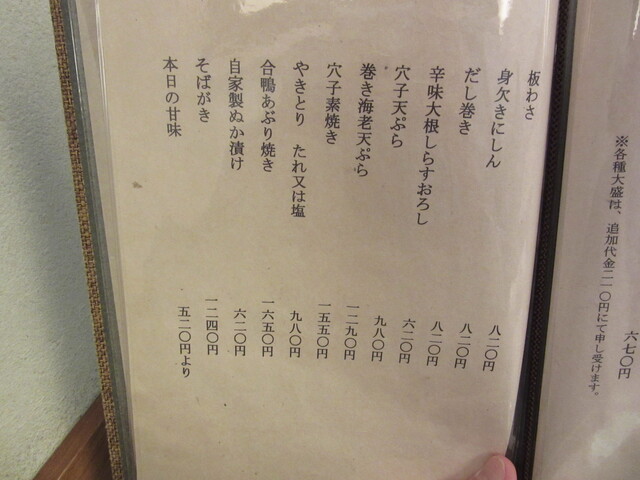 六七〇円
※各種大盛は、追加代金二一〇円にて申し受けます。
板わさ 八二〇円
身欠きにしん 八二〇円
だし巻き 八二〇円
辛味大根しらすおろし 六二〇円
穴子天ぷら 九八〇円
巻き海老天ぷら 一二九〇円
穴子素焼き 一五五〇円
やきとり たれ又は塩 九八〇円
合鴨あぶり焼き 一六五〇円
自家製ぬか漬け 六二〇円
そばがき 一二四〇円
本日の甘味 五二〇円より